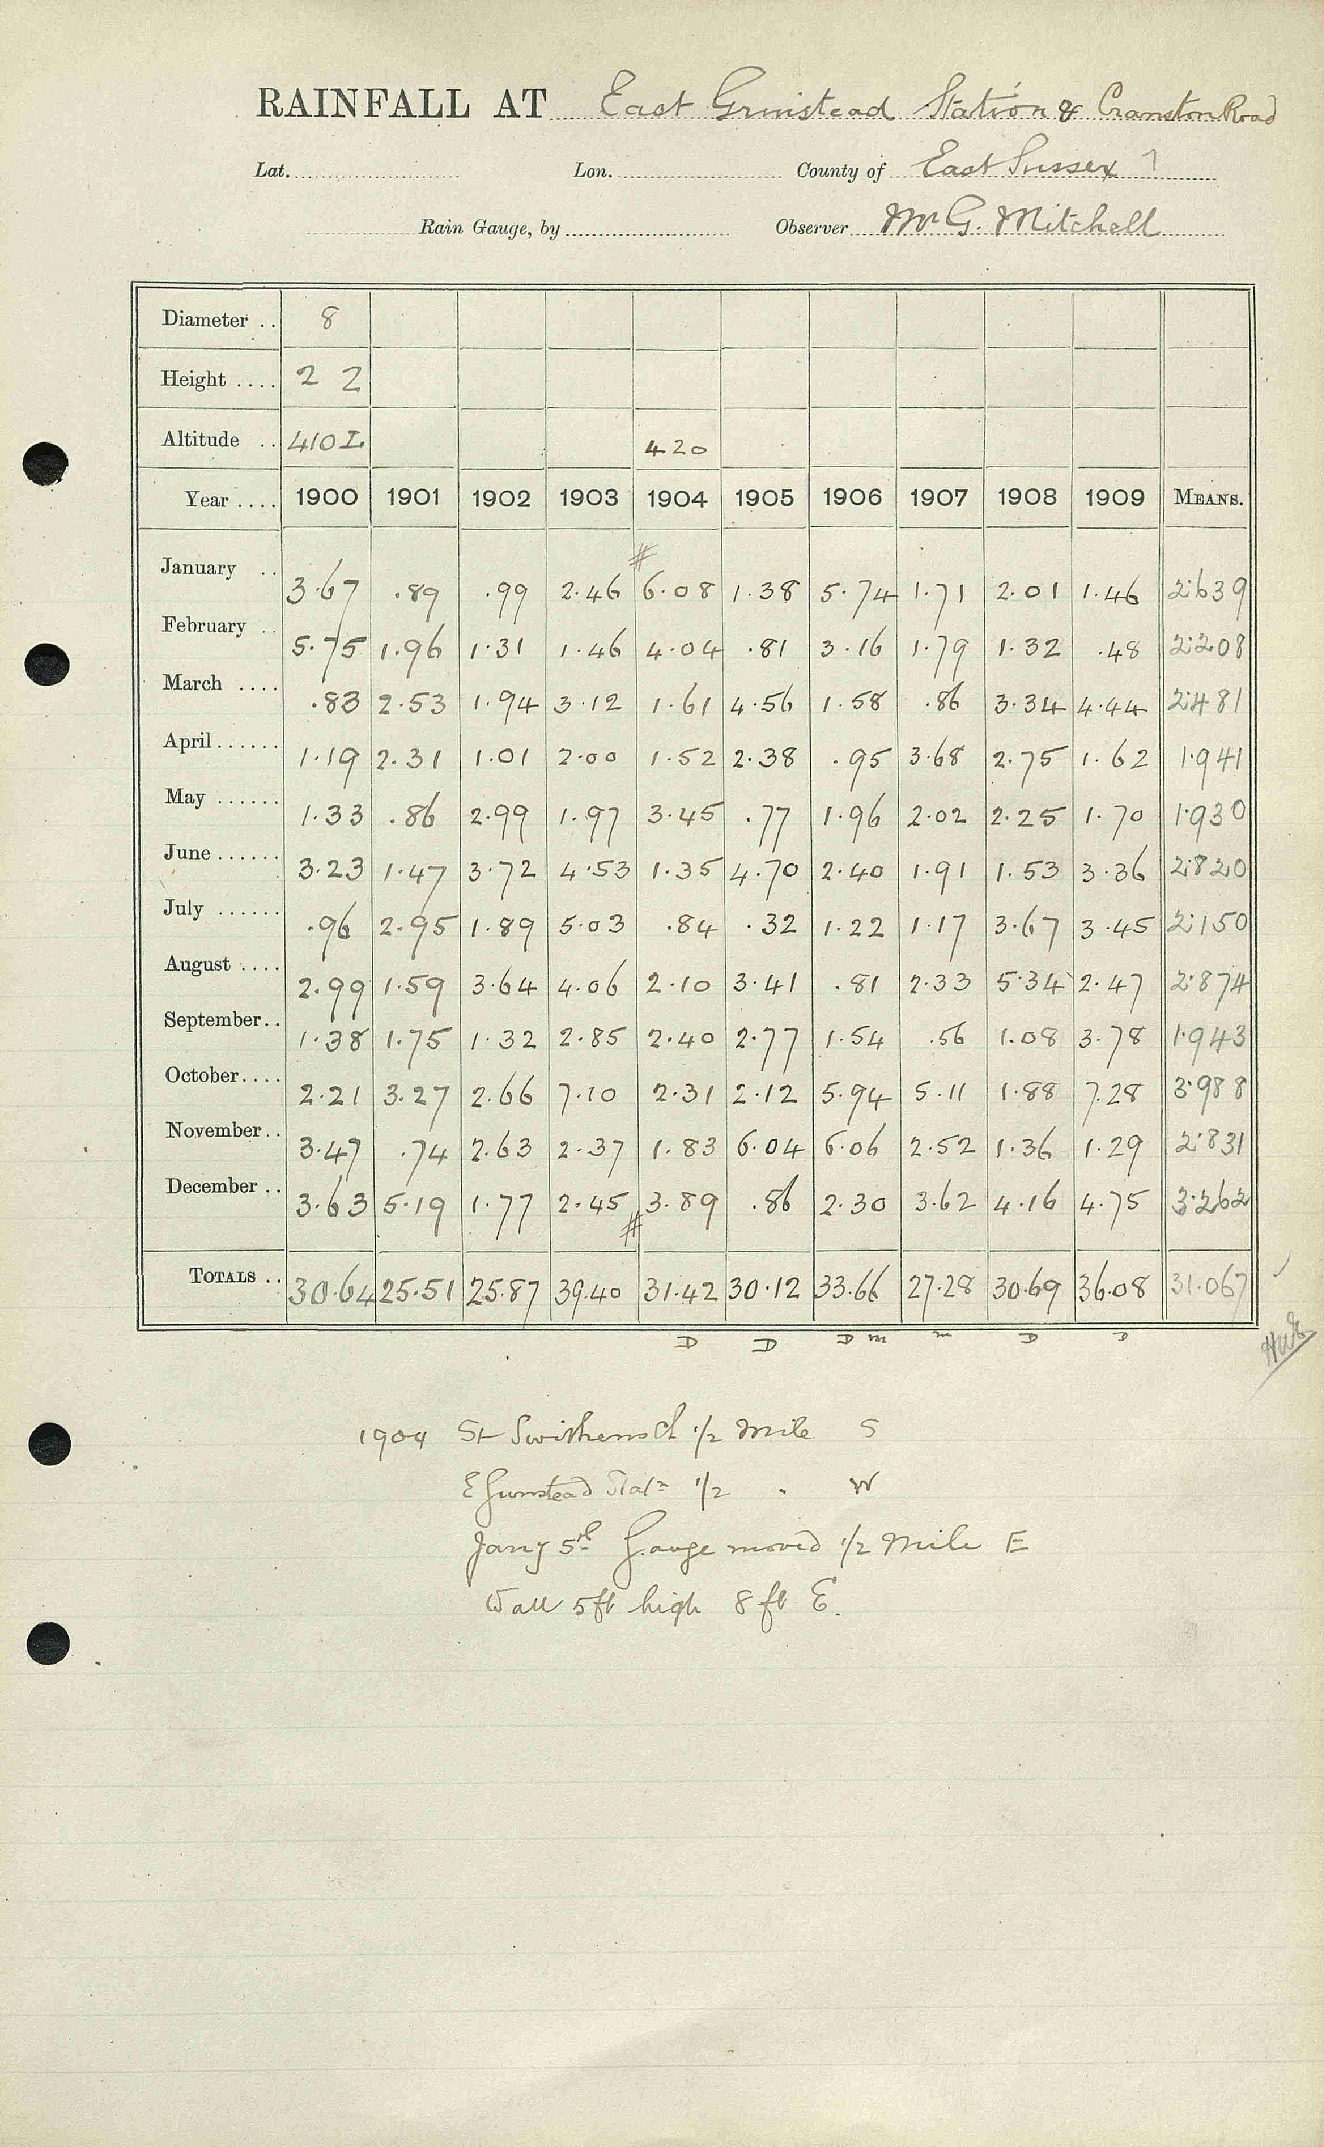 RAINFALL AT East Grinstead Station & Cranston Road
Lat. Lon. County of East Sussex 7
Rain Gauge, by Observer Mr G. Mitchell
Diameter .. 8
Height .... 2 2
Altitude .. 410 420
Year .... 1900 1901 1902 1903 1904 1905 1906 1907 1908 1909 MEANS.
#
January .. 3.67 .89 .99 2.46 6.08 1.38 5.74 1.71 2.01 1.46 2.639
February .. 5.75 1.96 1.31 1.46 4.04 .81 3.16 1.79 1.32 .48 2.208
March .... .83 2.53 1.94 3.12 1.61 4.56 1.58 .86 3.34 4.44 2.481
April ...... 1.19 2.31 1.01 2.00 1.52 2.38 .95 3.68 2.75 1.62 1.941
May ...... 1.33 .86 2.99 1.97 3.45 .77 1.96 2.02 2.25 1.70 1.930
June ...... 3.23 1.47 3.72 4.53 1.35 4.70 2.40 1.91 1.53 3.36 2.820
July ...... .96 2.95 1.89 5.03 .84 .32 1.22 1.17 3.67 3.45 2.150
August .... 2.99 1.59 3.64 4.06 2.10 3.41 .81 2.33 5.34 2.47 2.874
September .. 1.38 1.75 1.32 2.85 2.40 2.77 1.54 .56 1.08 3.78 1.943
October .... 2.21 3.27 2.66 7.10 2.31 2.12 5.94 5.11 1.88 7.28 3.988
November .. 3.47 .74 2.63 2.37 1.83 6.04 6.06 2.52 1.36 1.29 2.831
December .. 3.63 5.19 1.77 2.45 3.89 .86 2.30 3.62 4.16 4.75 3.262
#
TOTALS .. 30.64 25.51 25.87 39.40 31.42 30.12 33.66 27.28 30.69 36.08 31.067
D D D m m D D
1904 St Swithens Ch 1/2 Mile S
E Grinstead Statn 1/2 " W
Jany 5th Gauge moved 1/2 Mile E
Wall 5ft high 8 ft E.